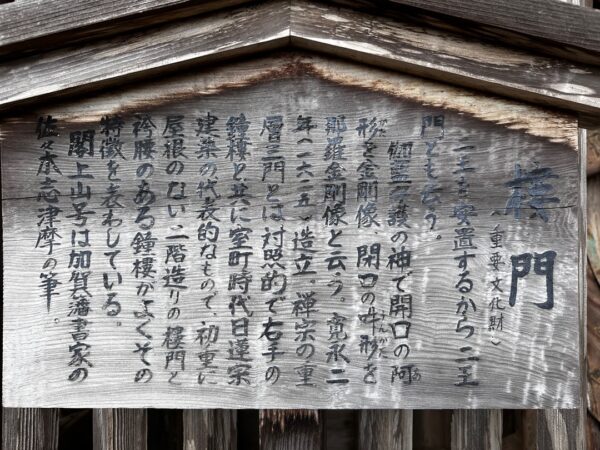 楼門
(重要文化財)
二王を安置するから二王
門とも云う。
伽藍守護の神で開口の阿
あ
形を金剛像 閉口の吽形を
うんぎょう
那羅金剛像と云う。寛永二
年(一六二五)造立。禅宗の重
層三門とは対照的で右手の
鐘楼と共に室町時代日蓮宗
建築の代表的なもので、初重に
屋根のない二階造りの楼門と
袴腰のある鐘楼がよくその
特徴を表わしている。
閣上山号は加賀藩書家の
佐々木志津摩の筆。